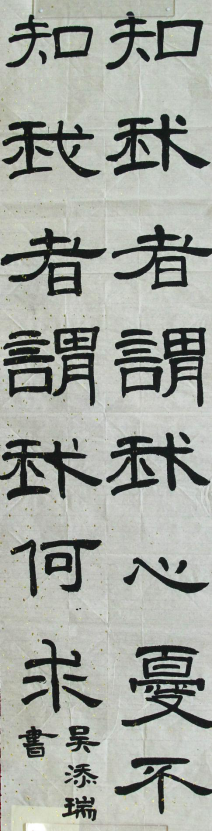 知我者謂我心憂不
知我者謂我何求
吴添瑞
書